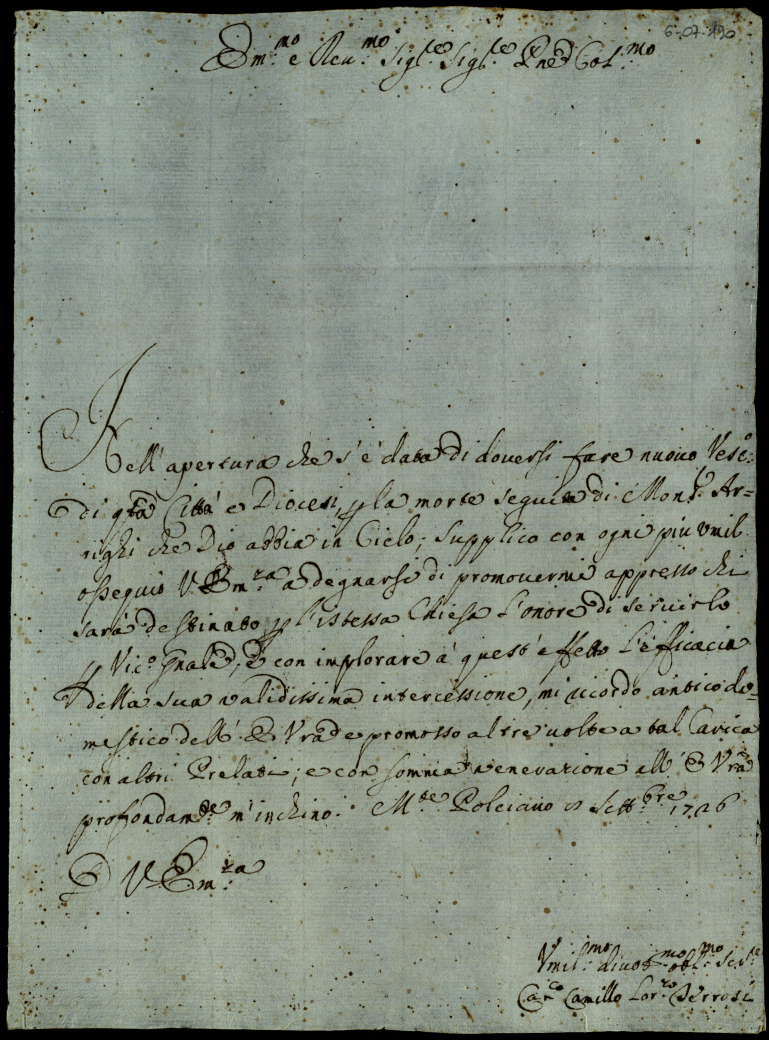 6-07-190
Em.mo e Reu.mo Sig.re Sig.re Pñe Col.mo
Nell'apertura che s'è data di douersi fare nuouo Vesc.o
di q̃ta Città e Diocesi, p la morte seguita di Mons.r Ar=
righi che Dio abbia in Cielo; supplico con ogni più vmil
ossequio V. Em.za a degnarsi di promouermi appresso chi
sarà destinato p l'istessa Chiesa l'onore di seruirlo
p Vic.o Gñale, e con implorare à quest'effetto l'efficacia
della sua validissima intercessione, mi ricordo antico do=
mestico dell'E Vrã e promosso altre uolte a tal Carica
con altri Prelati; e con somma uenerazione all'E Vrã
profondam.te m'inchino. M.te Polciano Sett.bre 1726
D V. Em.za
Vmil.mo diuot.mo obl.mo Ser.re
Can.co Camillo Lor.zo